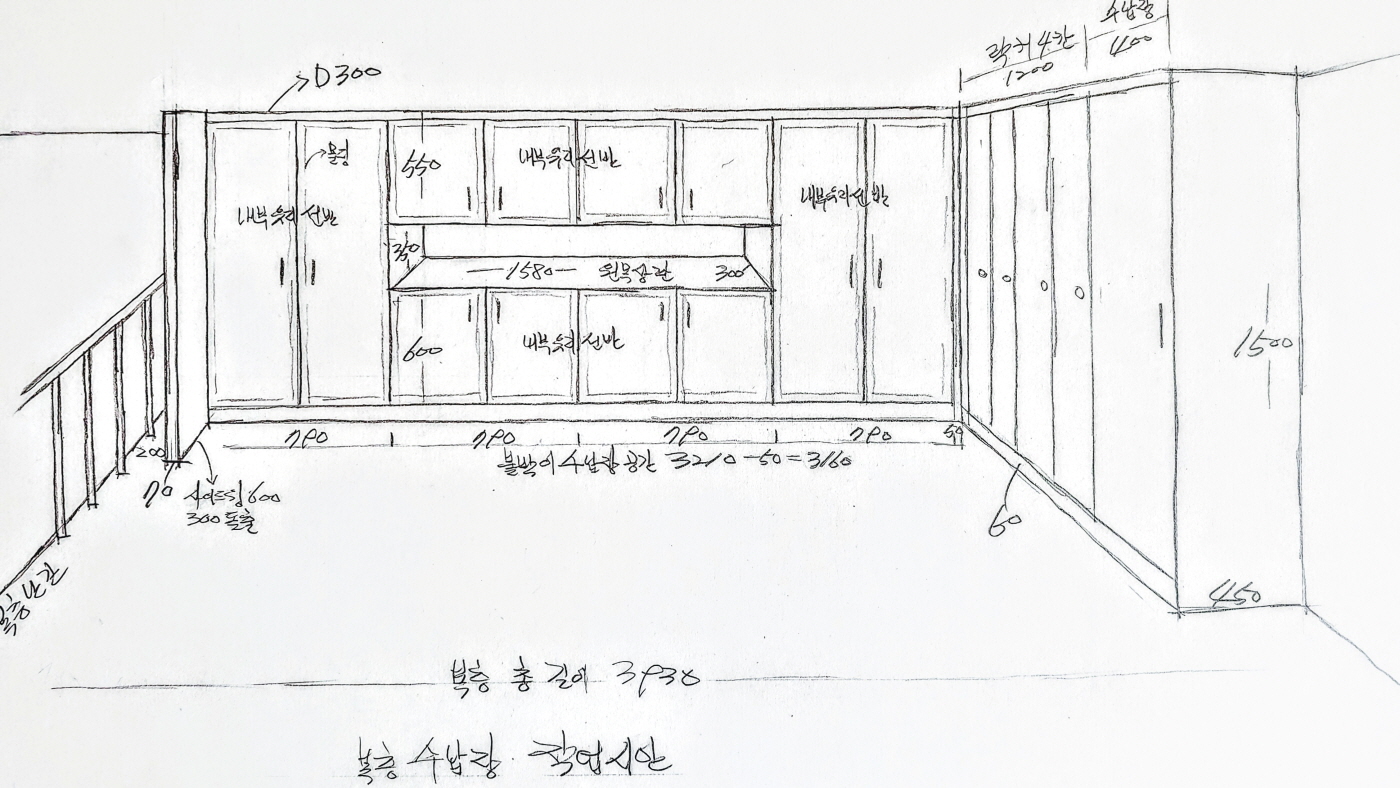 수납장
400
락커 4칸
1200
D300
몰딩
550
내부유리선반
내부유리선반
내부유리선반
1580
원목상판
300
600
내부유리선반
1500
790
790
790
790
50
200
붙박이 수납장 공간 3210-50=3160
70
사이드장 600
300 돌출
60
450
복층 난간
복층 총 길이 3930
복층 수납장 작업시안